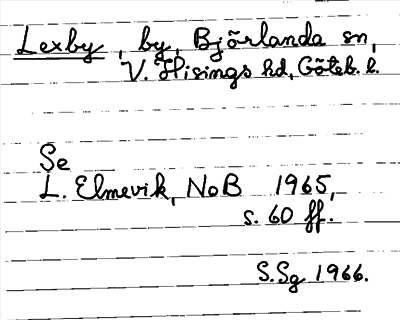 Lexby, by, Björlanda sn,
V. Hisings hd, Göteb. l.
Se
L. Elmevik, NoB 1965,
s. 60 ff.
S.Sg 1966.